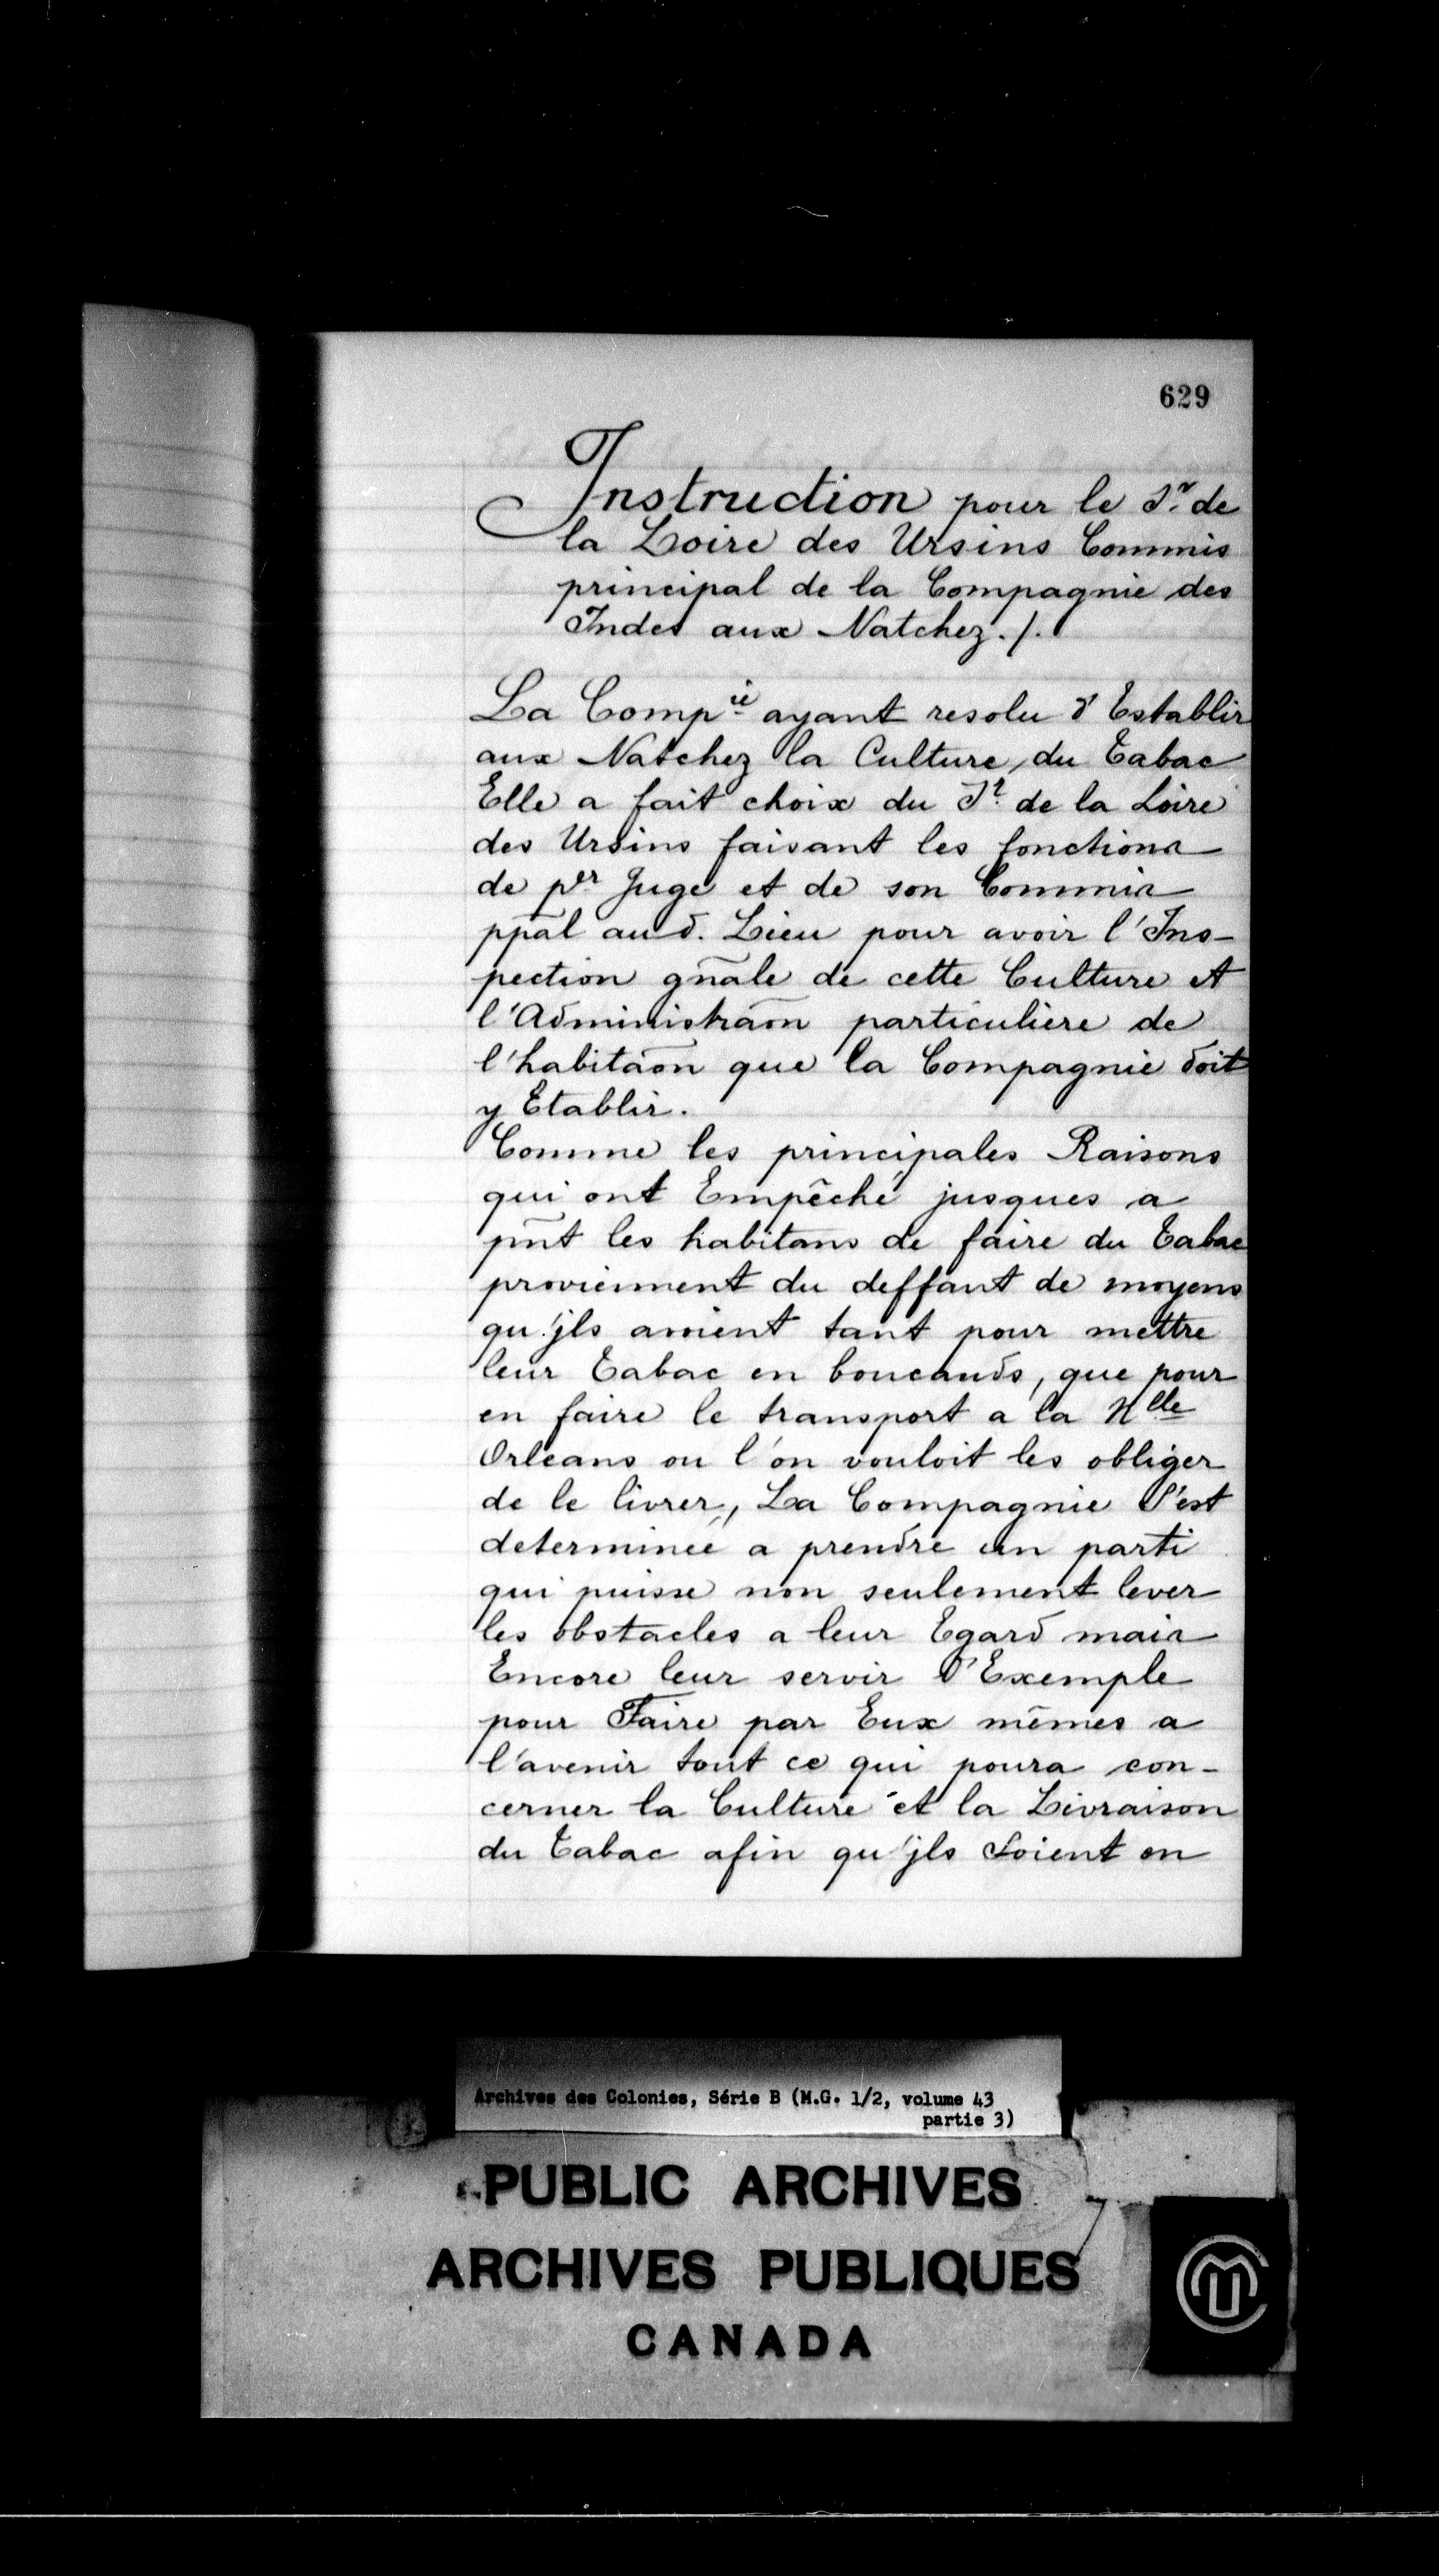 629
Instruction pour le Sr. de
la Loire des Ursins Commis
principal de la Compagnie des
Indes aux Natchez./.
La Compie ayant resolu d'Establir
aux Natchez la Culture du Tabac
Elle a fait choix du Sr. de la Loire
des Ursins faisant les fonctions
de per Juge et de son Commis
ppãl aud. Lieu pour avoir l'Ins-
pection gñale de cette Culture et
l'Administraõn particuliere de
l'habitaõn que la Compagnie doit
y Etablir.
Comme les principales Raisons
qui ont Empêché jusques a
pñt les habitans de faire du Tabac
proviennent du deffaut de moyens
qu'jls avoient tant pour mettre
leur Tabac en boucauds, que pour
en faire le transport a la Nlle
Orleans ou l'on vouloit les obliger
de le livrer, La Compagnie S'est
determinée a prendre un parti
qui puisse non seulement lever
les obstacles a leur Egard mais
Encore leur servir d'Exemple
pour Faire par Eux mêmes a
l'avenir tout ce qui poura con-
cerner la Culture et la Livraison
du Tabac afin qu'jls Soient en
Archives des Colonies, Série B (M.G. 1/2, volume 43
partie 3)
PUBLIC ARCHIVES
ARCHIVES PUBLIQUES
CANADA